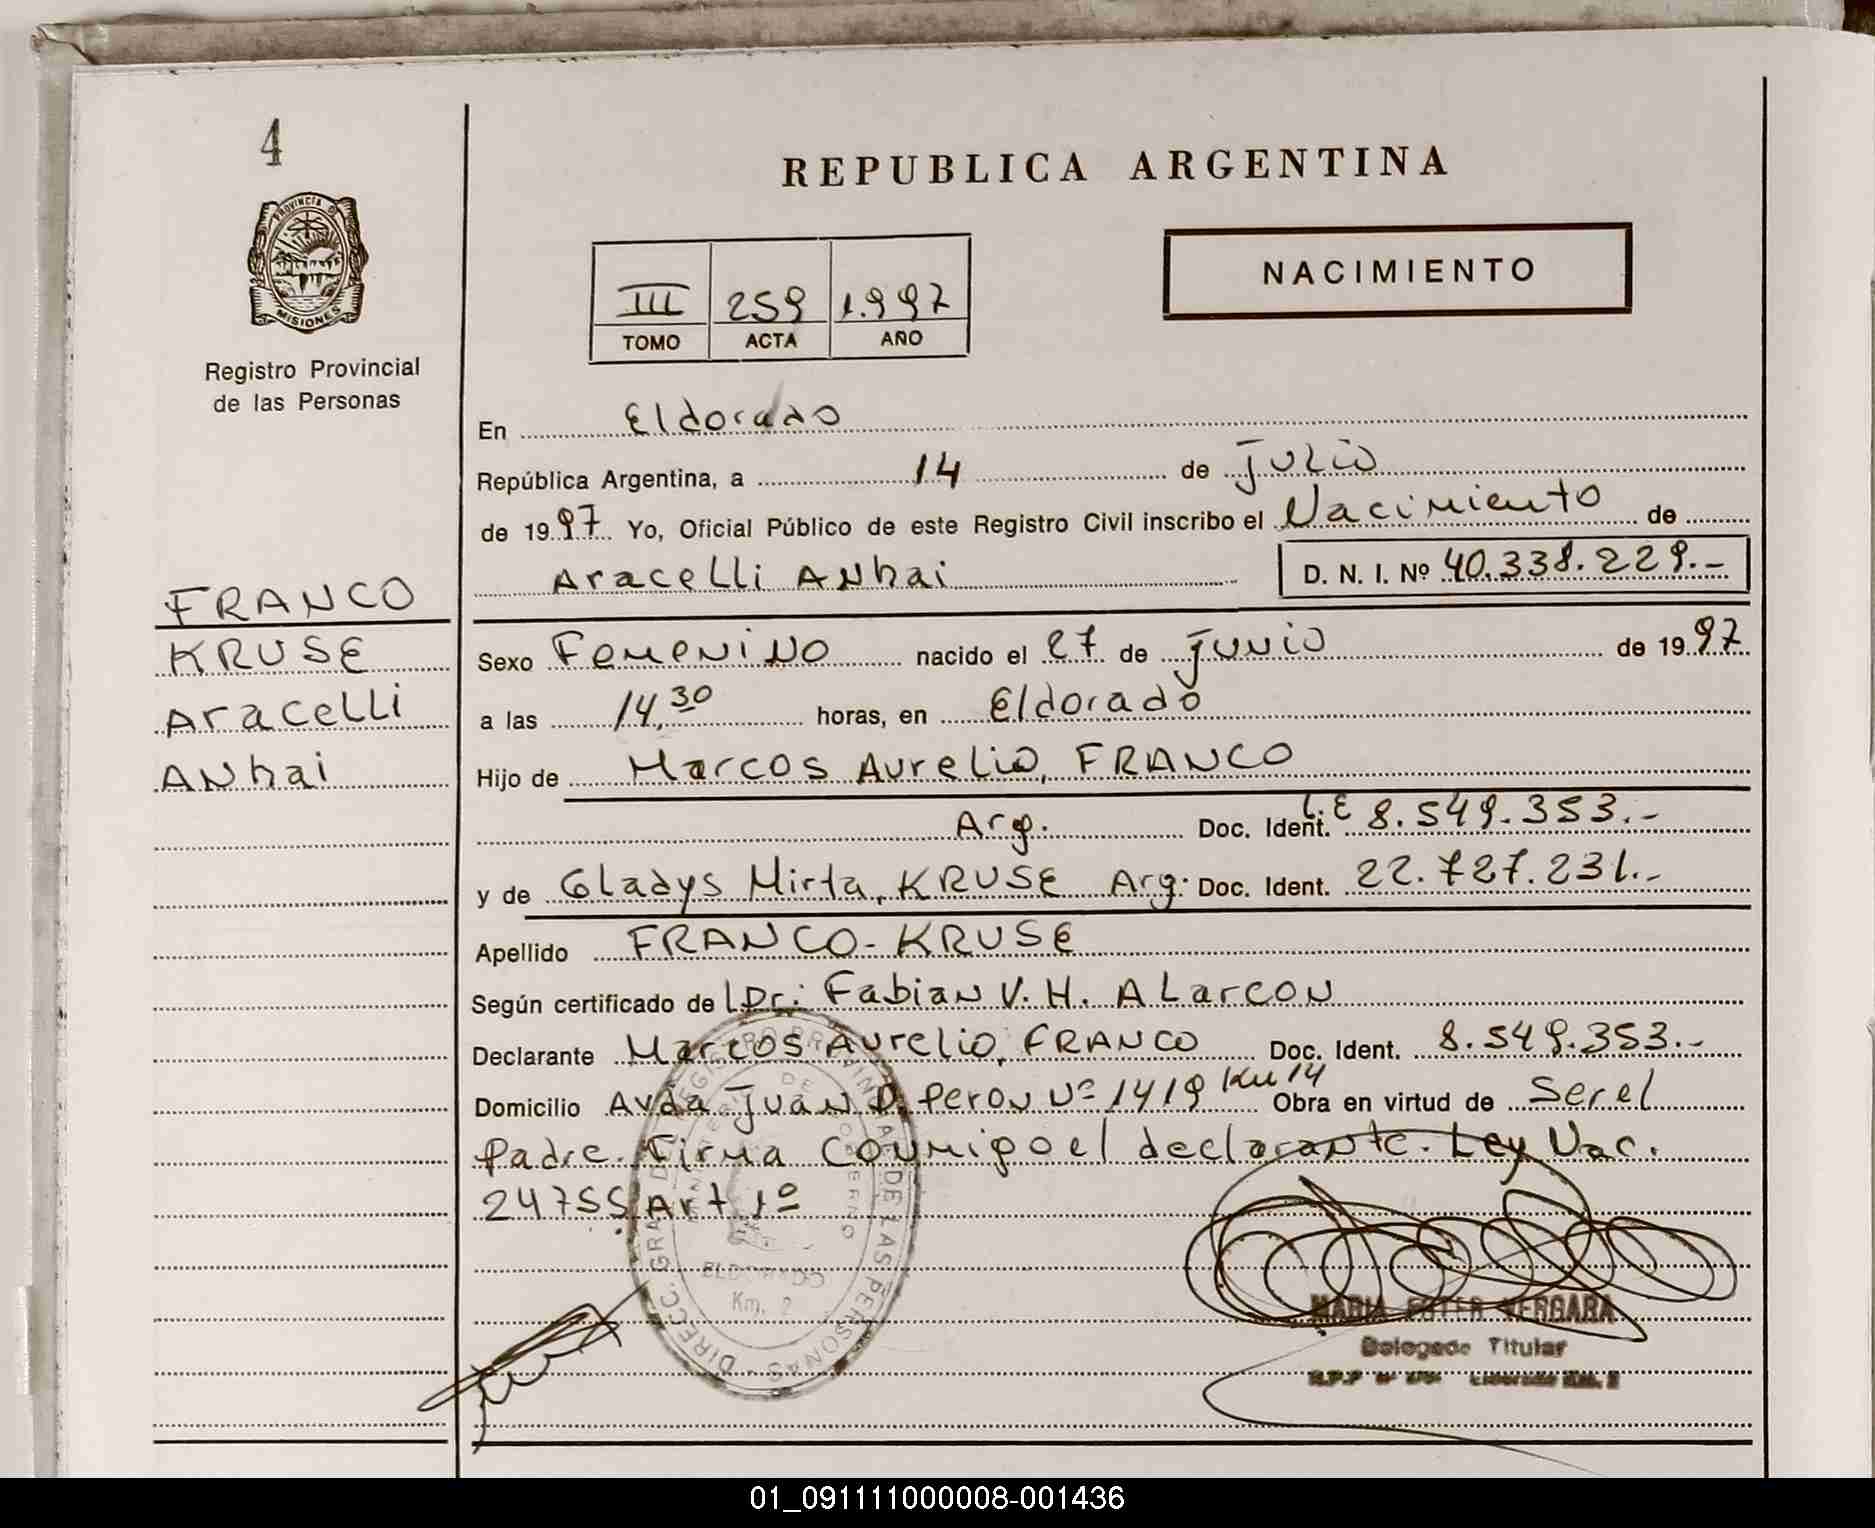 4
PROVINCIA DE
MISIONES
Registro Provincial
de las Personas
FRANCO
KRUSE
Aracelli
ANhai
REPUBLICA ARGENTINA
III 259 1.997
TOMO ACTA AÑO
NACIMIENTO
En Eldorado
República Argentina, a 14 de Julio
de 1997 Yo, Oficial Público de este Registro Civil inscribo el Nacimiento de
Aracelli ANhai D. N. I. Nº 40.338.229.-
Sexo Femenino nacido el 27 de Junio de 1997
a las 14,30 horas, en Eldorado
Hijo de Marcos Aurelio, FRANCO
Arg. Doc. Ident. L.E 8.549.353.-
y de Gladys Mirta, KRUSE Arg. Doc. Ident. 22.727.231.-
Apellido FRANCO-KRUSE
Según certificado de Dr: Fabian V. H. ALarcon
Declarante Marcos Aurelio, FRANCO Doc. Ident. 8.549.353.-
Domicilio Avda Juan D. Peron Nº 1419 Km 14 Obra en virtud de Ser el
Padre. Firma Conmigo el declarante. Ley Nac.
24755 Art 1º
DIRECC. GRAL. DE REGISTRO PROVINCIAL DE LAS PERSONAS
MINISTERIO DE GOBIERNO
ELDORADO
Km. 2
MARIA ESTER VERGARA
Delegado Titular
Eldorado KM. 2
01_091111000008-001436